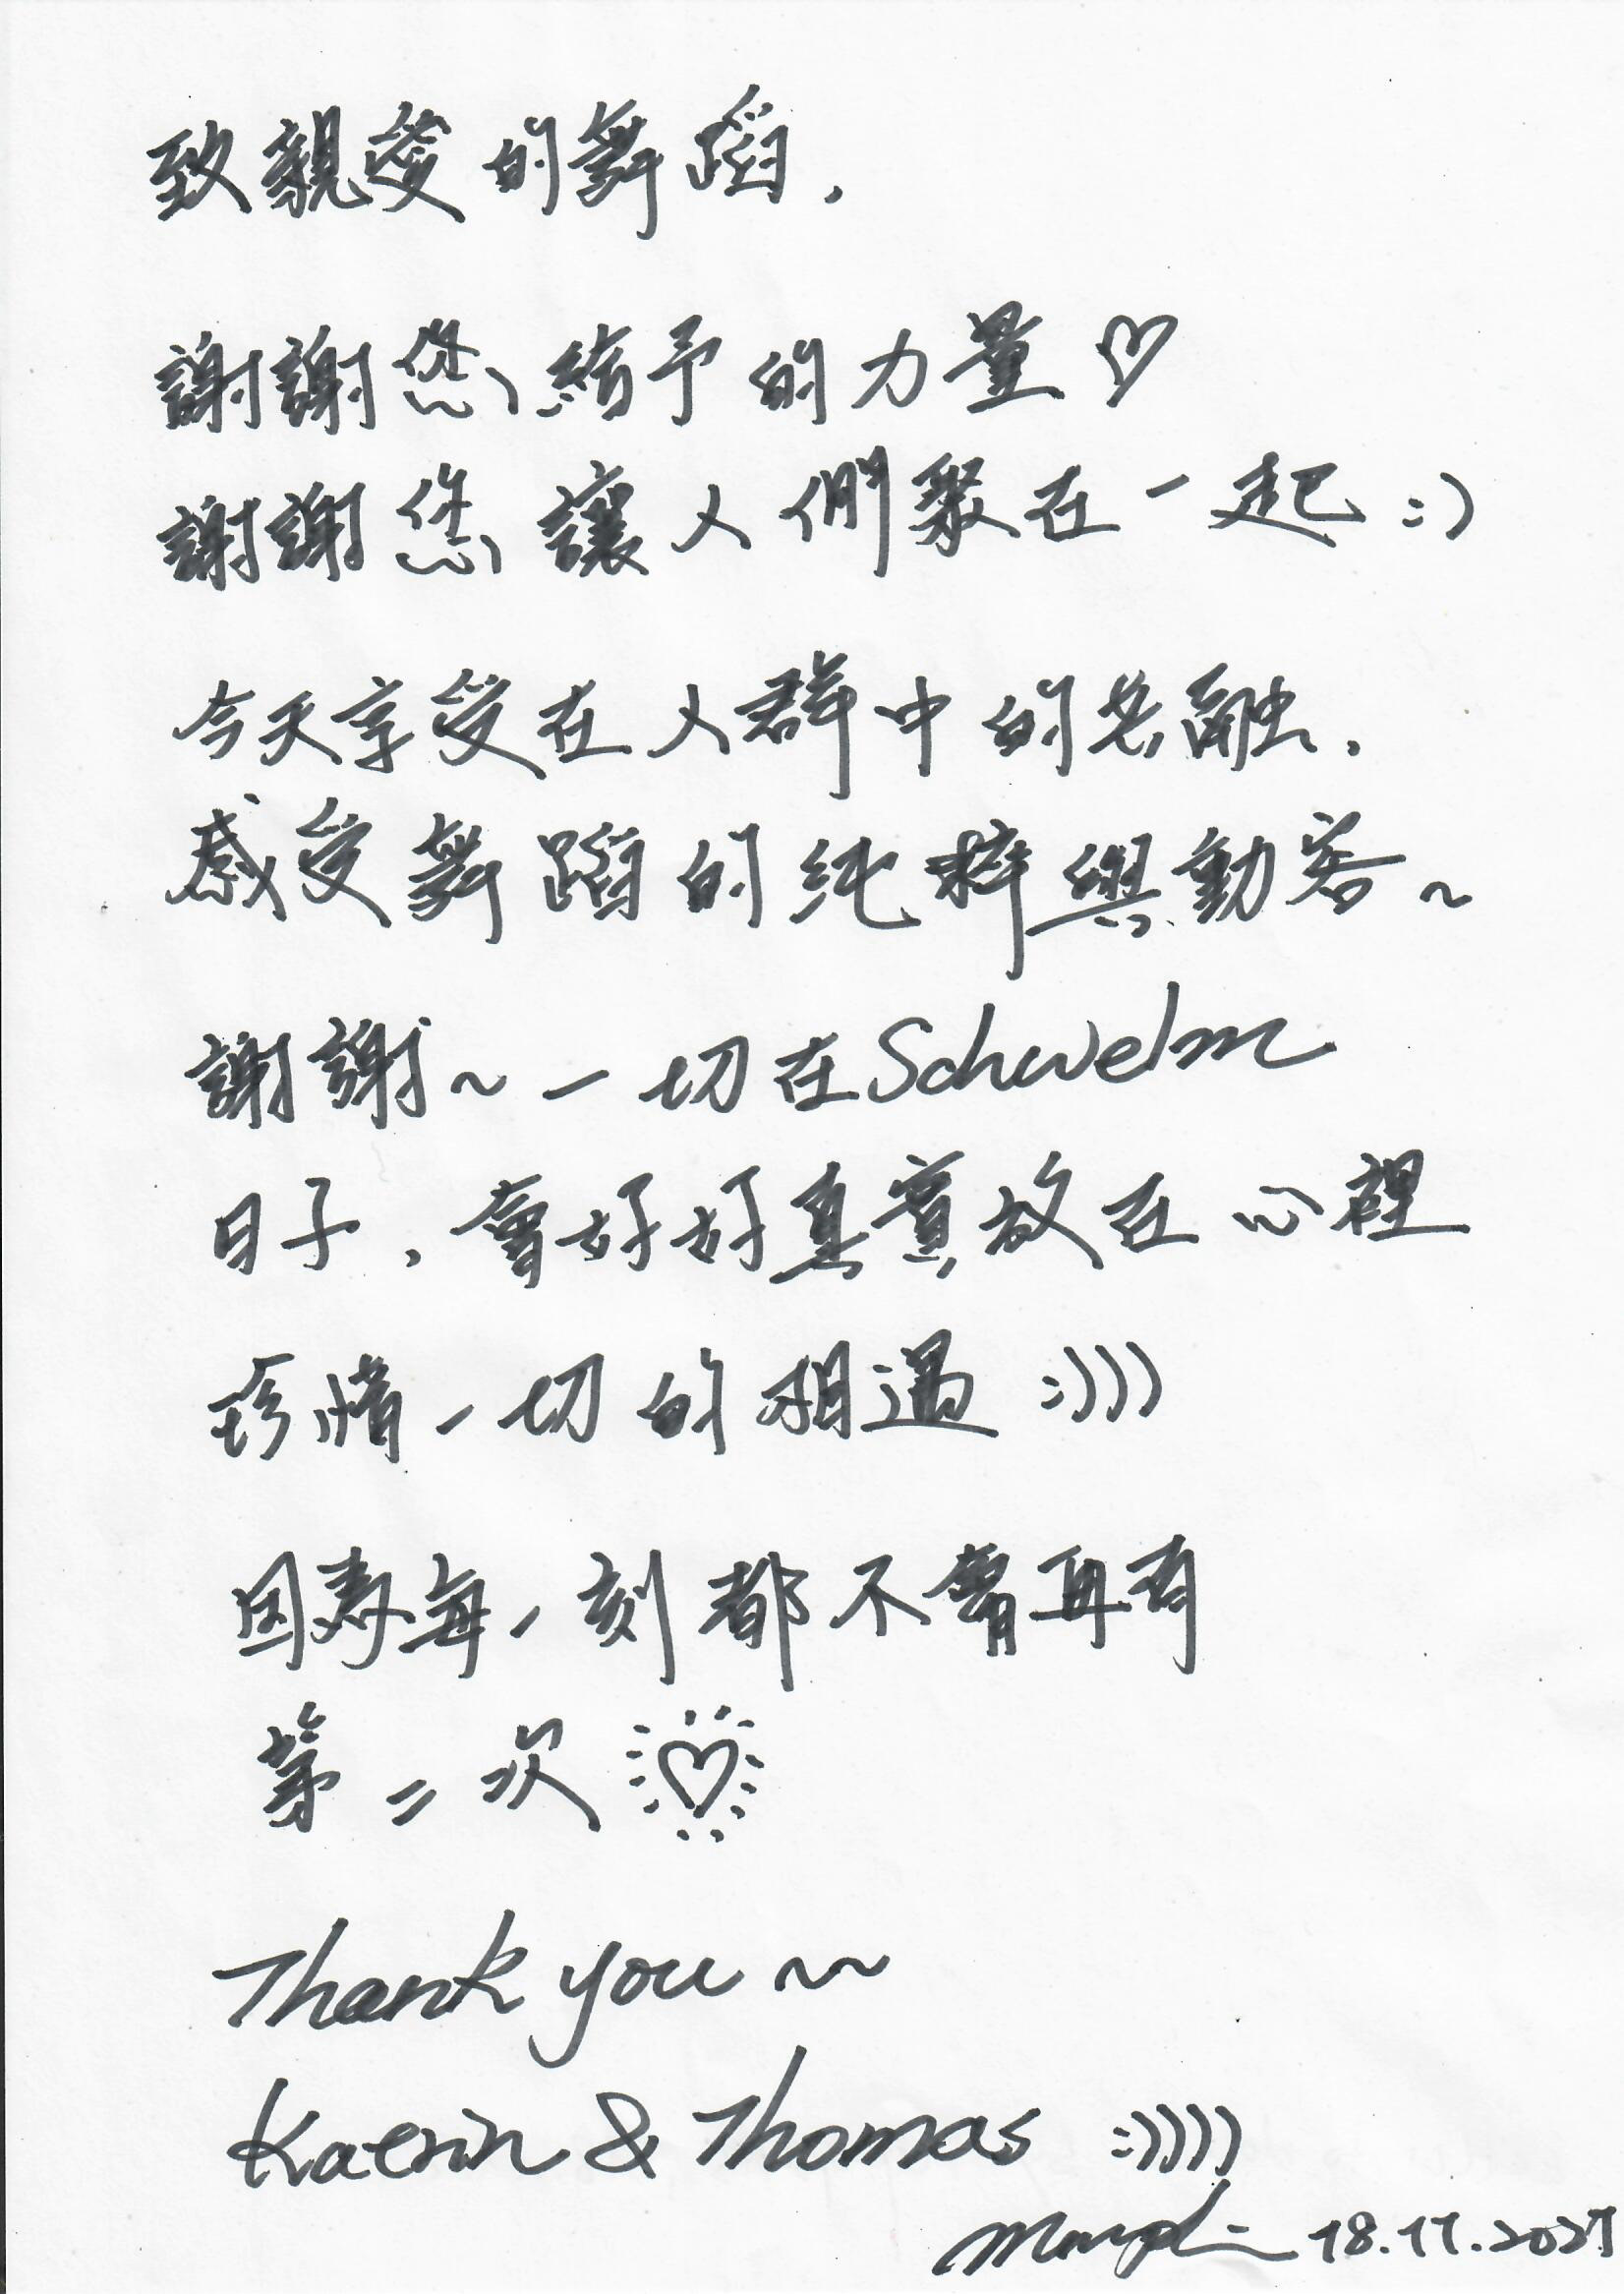 致親愛的舞蹈，
謝謝您給予的力量♡
謝謝您讓人們聚在一起:)
今天享受在人群中的共融，
感受舞蹈的純粹與動容~
謝謝~一切在Schwelm
日子，會好好真實放在心裡
珍惜一切的相遇:))))
因為每一刻都不會再有
第二次♡
Thank you ~~
Katrin & Thomas :)))))
18.11.2021